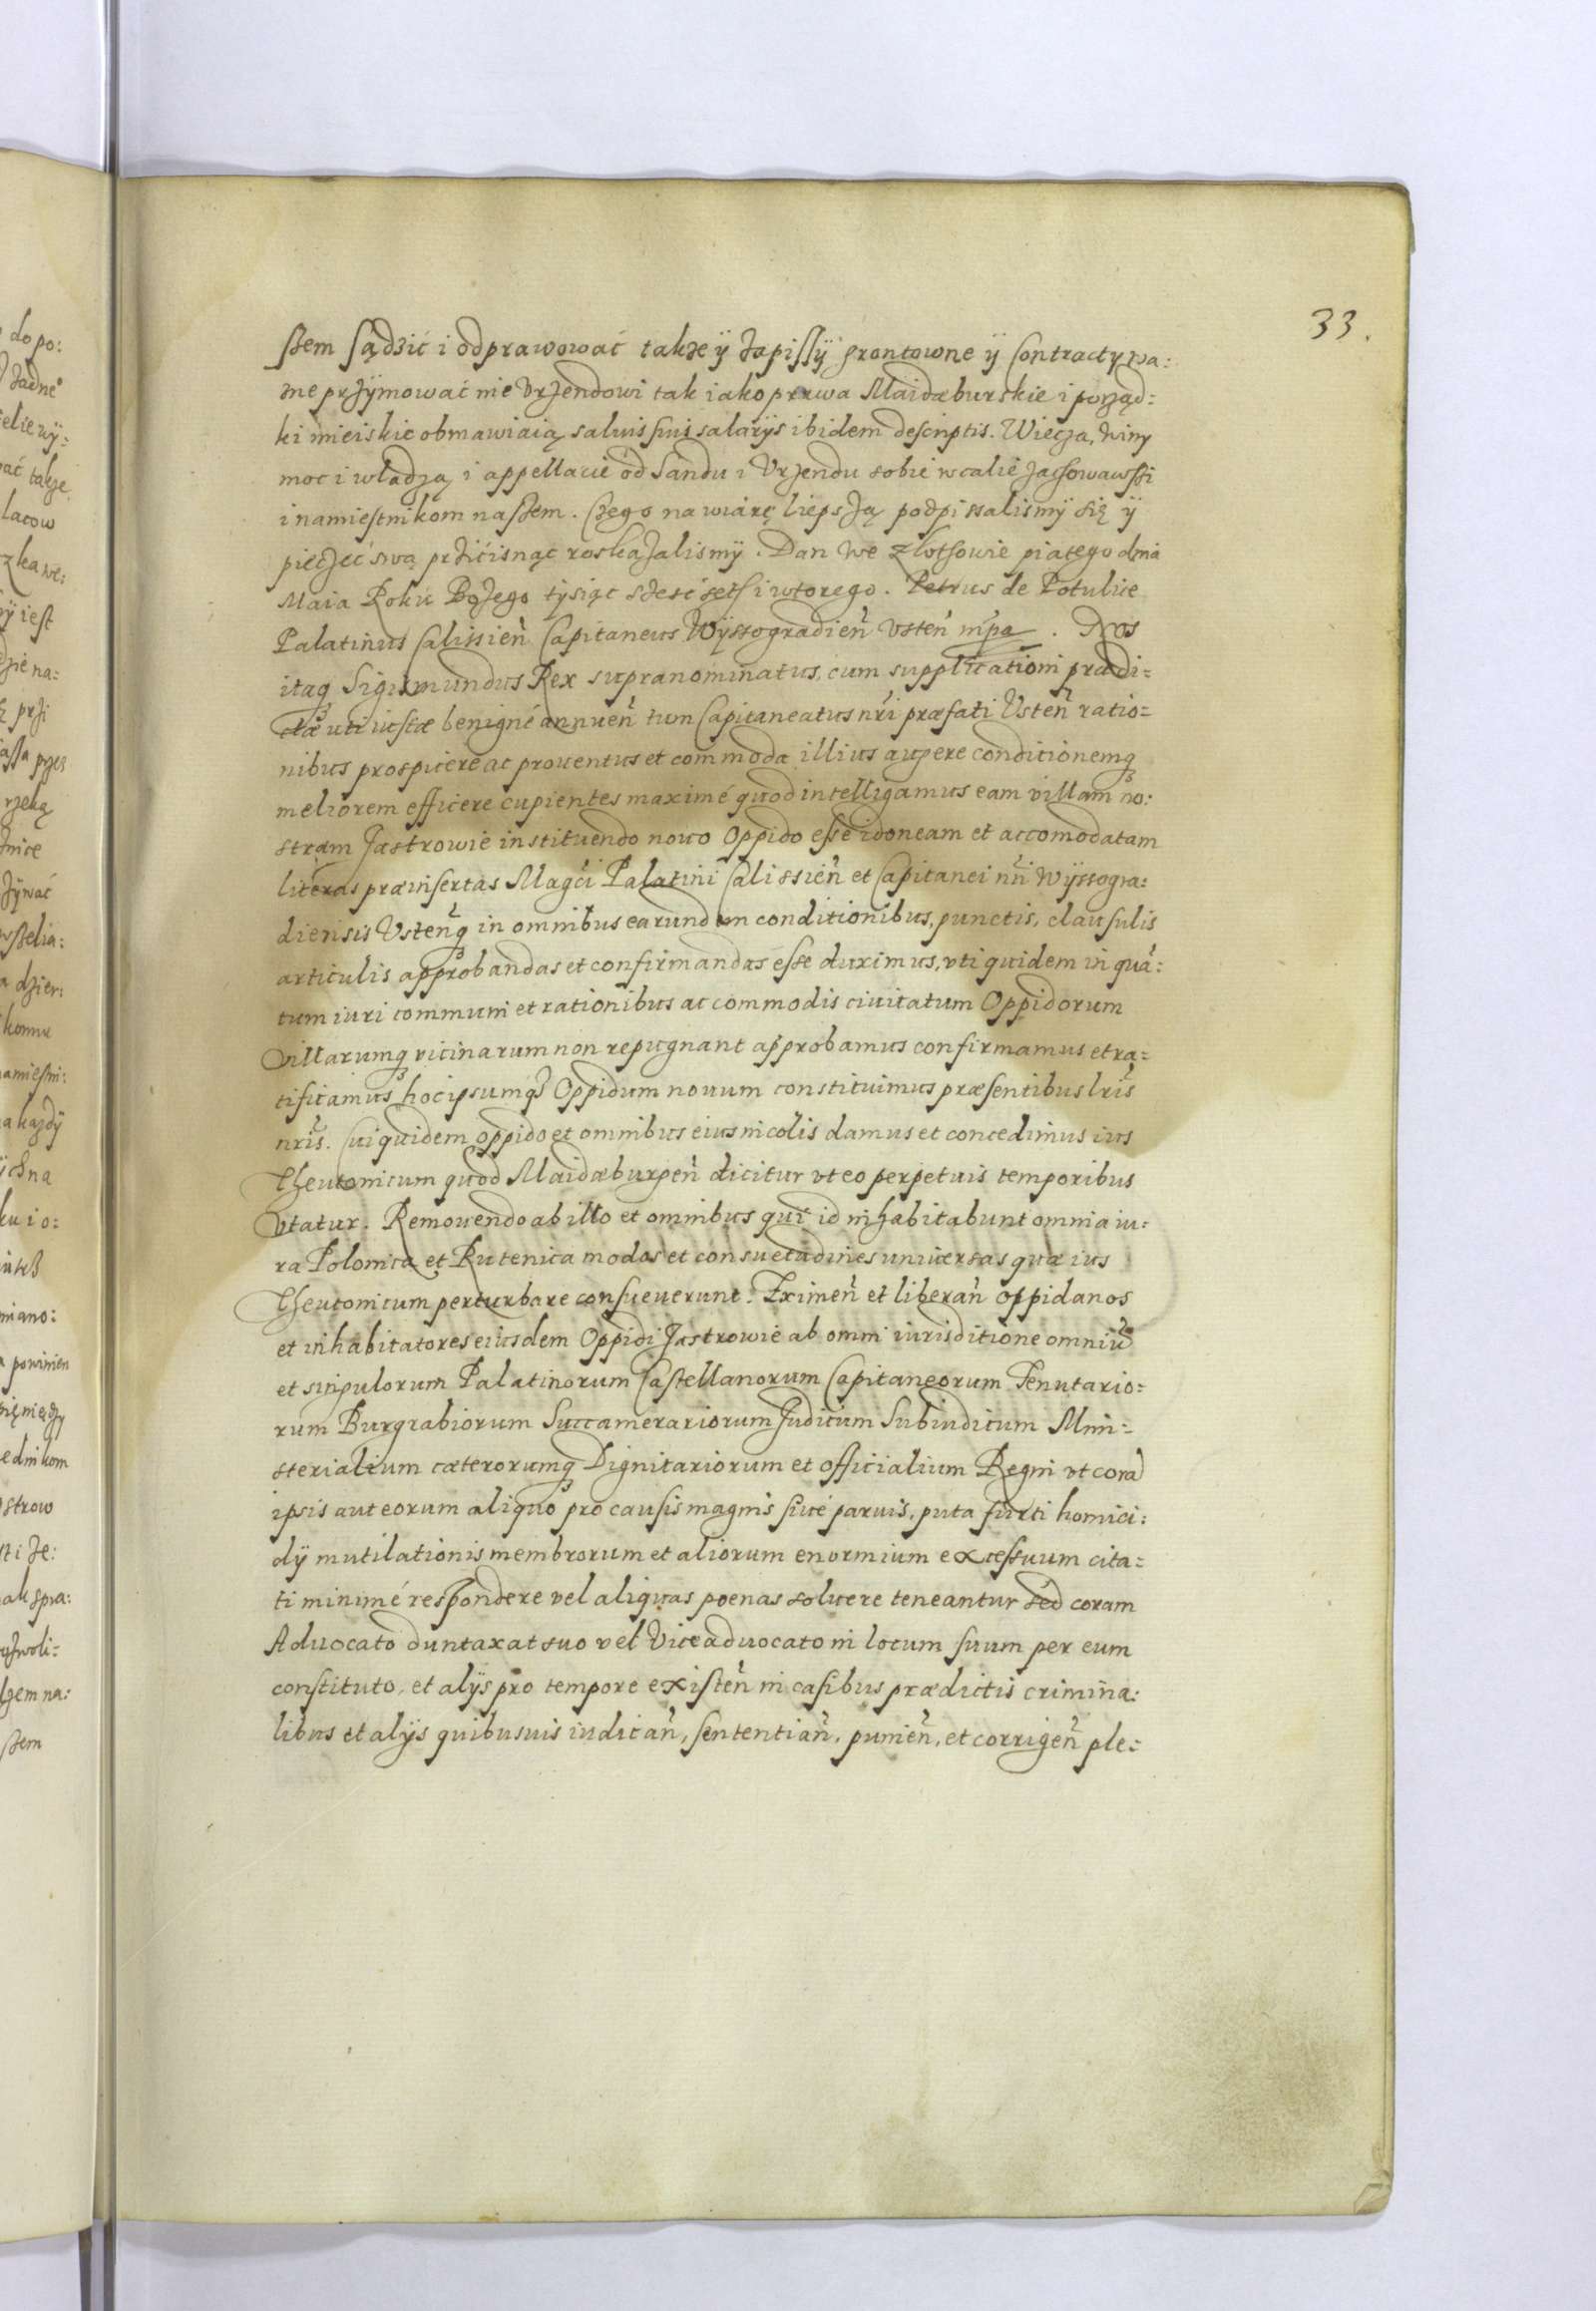 33.
ssem sądzić i odprawować takze ÿ zapissÿ grontowne ÿ Contracty wa:
zne przÿmować nie Vrzendowi tak iako prawa Maidæburskie i porząd:
ki mieiskie obmawiaią saluis suis salarÿs ibidem descriptis. Wiecza, winy
moc i władzą i appellacie od Sandu i Vrzendu sobie wcalie zachowawssi
i namiestnikom nassem. Czego na wiarę liepszą podpissalismÿ się ÿ
pieczeć swą prziċisnąc roskazalismÿ. Dan we Zlotsowie piątego dnia
Maia Roku Bozego tÿsiąc szesć seth i wtorego. Petrus de Potulice
Palatinus Calissień Capitaneus Wÿssogradień Vsteń mpa. Nos
itaq Sigismundus Rex supranominatus, cum supplicationi prædi=
ctæ uti iustæ benigné annueń tum Capitaneatus nri præfati Vsteń ratio=
nibus prospicere ac prouentus et commoda illius augere conditionemq
meliorem efficere cupientes maximé quod intelligamus eam villam no:
stram Jastrowie instituendo nouo Oppido esse idoneam et accomodatam
literas præinsertas Magci Palatini Calissień et Capitanei nri Wÿssogra:
diensis Vsteńq in omnibus earundem conditionibus, punctis, clausulis
articulis approbandas et confirmandas esse duximus, vti quidem in quā:
tum iuri communi et rationibus ac commodis ciuitatum Oppidorum
Villarumq vicinarum non repugnant approbamus confirmamus et ra=
tificamus, hoc ipsumq Oppidum nouum constituimus præsentibus lris
nris. Cui quidem oppido et omnibus eius incolis damus et concedimus ius
Theutonicum quod Maidæburgeń dicitur vt eo perpetuis temporibus
vtatur. Remouendo ab illo et omnibus qui id inhabitabunt omnia iu:
ra Polonica et Rutenica modos et consuetudines uniuersas quæ ius
Theutonicum perturbare consueuerunt. Eximeń et liberań oppidanos
et inhabitatores eiusdem Oppidi Jastrowie ab omni iurisditione omniū
et singulorum Palatinorum Castellanorum Capitaneorum Tenutario=
rum Burgrabiorum Succamerariorum Judicum Subiudicum Mini=
sterialium cæterorumq Dignitariorum et officialium Regni vt corā
ipsis aut eorum aliquo pro causis magnis siué paruis, puta furti homici:
dÿ mutilationis membrorum et aliorum enormium excessuum cita=
ti minimé respondere vel aliquas poenas soluere teneantur sed coram
Aduocato duntaxat suo vel Viceaduocato in locum suum per eum
constituto, et alÿs pro tempore existeń in casibus prædictis crimina:
libus et alÿs quibusuis iudicań, sententiań, punień, et corrigeń ple: